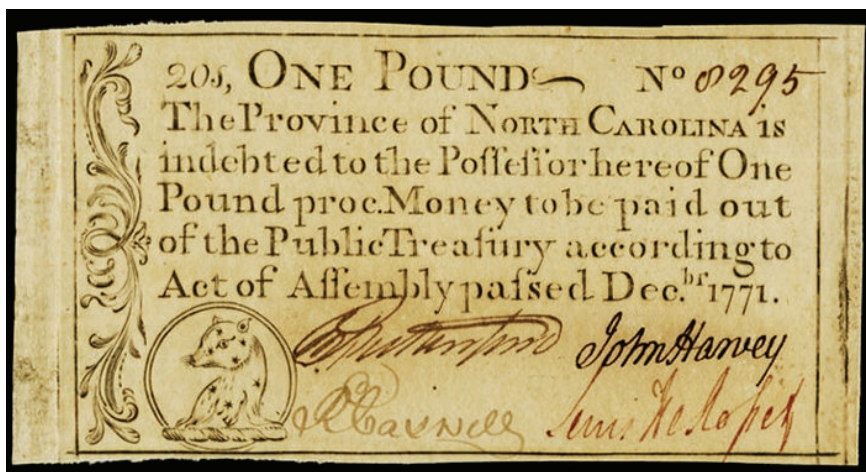 20s, ONE POUND No 8295
The Province of NORTH CAROLINA is
indebted to the Poſſeſſor hereof One
Pound proc. Money to be paid out
of the Public Treaſury according to
Act of Aſſembly paſsed Dec.br 1771.
John Harvey
R Caswell